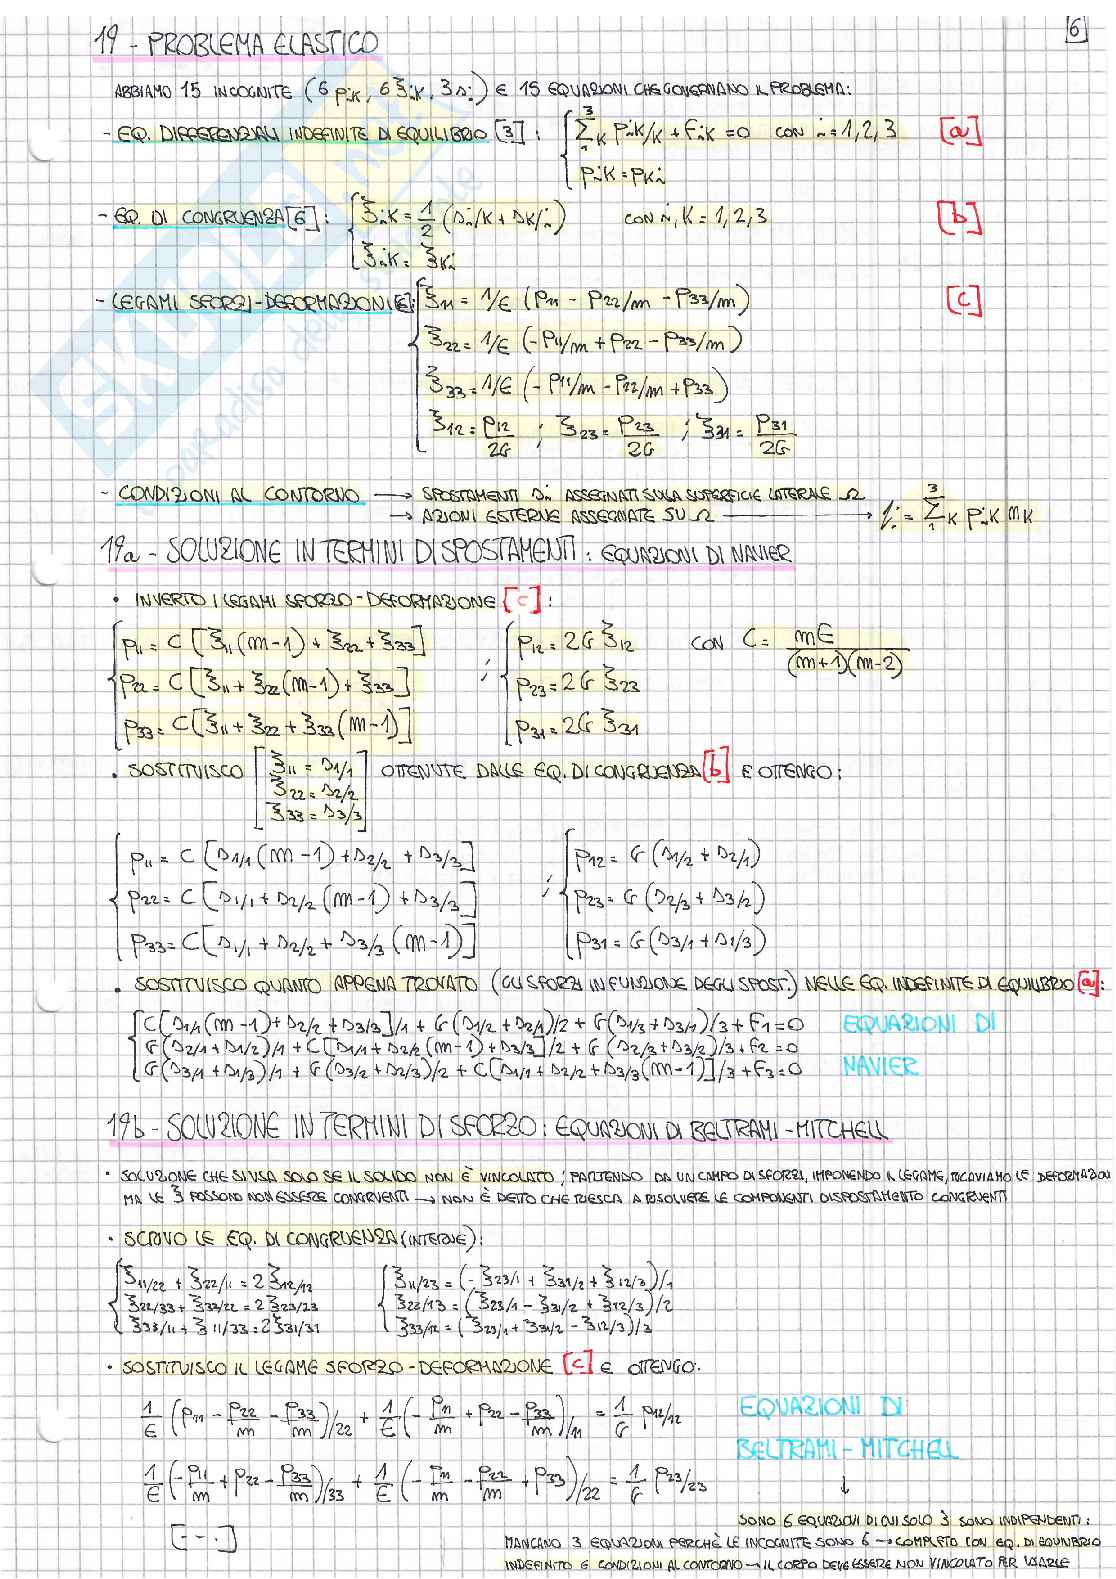 19 - PROBLEMA ELASTICO
6
ABBIAMO 15 INCOGNITE (6 pik, 6 ξik, 3 si) E 15 EQUAZIONI CHE GOVERNANO IL PROBLEMA:
- EQ. DIFFERENZIALI INDEFINITE DI EQUILIBRIO [3] : { Σ₁³k pik/k + Fik = 0 CON i = 1, 2, 3 [a]
pik = pki
- EQ. DI CONGRUENZA [6] : { ξik = 1/2 (si/k + sk/i) CON i, K = 1, 2, 3 [b]
ξik = ξki
- LEGAMI SFORZI-DEFORMAZIONI [6]: { ξ11 = 1/E (p11 - p22/m - p33/m) [c]
ξ22 = 1/E (-p11/m + p22 - p33/m)
ξ33 = 1/E (-p11/m - p22/m + p33)
ξ12 = p12/2G ; ξ23 = p23/2G ; ξ31 = p31/2G
- CONDIZIONI AL CONTORNO → SPOSTAMENTI si ASSEGNATI SULLA SUPERFICIE LATERALE Ω
→ AZIONI ESTERNE ASSEGNATE SU Ω → fi = Σ₁³k pik mk
19a - SOLUZIONE IN TERMINI DI SPOSTAMENTI : EQUAZIONI DI NAVIER
• INVERTO I LEGAMI SFORZO-DEFORMAZIONE [c] :
{ p11 = C [ξ11 (m-1) + ξ22 + ξ33] ; { p12 = 2G ξ12 CON C = mE/((m+1)(m-2))
p22 = C [ξ11 + ξ22 (m-1) + ξ33] p23 = 2G ξ23
p33 = C [ξ11 + ξ22 + ξ33 (m-1)] p31 = 2G ξ31
• SOSTITUISCO [ξ11 = s1/1 OTTENUTE DALLE EQ. DI CONGRUENZA [b] E OTTENGO:
ξ22 = s2/2
ξ33 = s3/3]
{ p11 = C [s1/1 (m-1) + s2/2 + s3/3] ; { p12 = G (s1/2 + s2/1)
p22 = C [s1/1 + s2/2 (m-1) + s3/3] p23 = G (s2/3 + s3/2)
p33 = C [s1/1 + s2/2 + s3/3 (m-1)] p31 = G (s3/1 + s1/3)
• SOSTITUISCO QUANTO APPENA TROVATO (GLI SFORZI IN FUNZIONE DEGLI SPOST.) NELLE EQ. INDEFINITE DI EQUILIBRIO [a] :
{ C [s1/1 (m-1) + s2/2 + s3/3]/1 + G (s1/2 + s2/1)/2 + G (s1/3 + s3/1)/3 + F1 = 0 EQUAZIONI DI
G (s2/1 + s1/2)/1 + C [s1/1 + s2/2 (m-1) + s3/3]/2 + G (s2/3 + s3/2)/3 + F2 = 0
G (s3/1 + s1/3)/1 + G (s3/2 + s2/3)/2 + C [s1/1 + s2/2 + s3/3 (m-1)]/3 + F3 = 0 NAVIER
19b - SOLUZIONE IN TERMINI DI SFORZO : EQUAZIONI DI BELTRAMI-MITCHELL
• SOLUZIONE CHE SI USA SOLO SE IL SOLIDO NON È VINCOLATO ; PARTENDO DA UN CAMPO DI SFORZI, IMPONENDO IL LEGAME, RICAVIAMO LE DEFORMAZIONI
MA LE ξ POSSONO NON ESSERE CONGRUENTI → NON È DETTO CHE RIESCA A RISOLVERE LE COMPONENTI DI SPOSTAMENTO CONGRUENTI
• SCRIVO LE EQ. DI CONGRUENZA (INTERNE) :
{ ξ11/22 + ξ22/11 = 2 ξ12/12 { ξ11/23 = (-ξ23/1 + ξ31/2 + ξ12/3)/1
ξ22/33 + ξ33/22 = 2 ξ23/23 ξ22/13 = (ξ23/1 - ξ31/2 + ξ12/3)/2
ξ33/11 + ξ11/33 = 2 ξ31/31 ξ33/12 = (ξ23/1 + ξ31/2 - ξ12/3)/3
• SOSTITUISCO IL LEGAME SFORZO-DEFORMAZIONE [c] E OTTENGO:
1/E (p11 - p22/m - p33/m)/22 + 1/E (-p11/m + p22 - p33/m)/11 = 1/G p12/12 EQUAZIONI DI
BELTRAMI-MITCHELL
1/E (-p11/m + p22 - p33/m)/33 + 1/E (-p11/m - p22/m + p33)/22 = 1/G p23/23 ↓
SONO 6 EQUAZIONI DI CUI SOLO 3 SONO INDIPENDENTI :
[---] MANCANO 3 EQUAZIONI PERCHÈ LE INCOGNITE SONO 6 → COMPLETO CON EQ. DI EQUILIBRIO
INDEFINITO E CONDIZIONI AL CONTORNO → IL CORPO DEVE ESSERE NON VINCOLATO PER USARLE